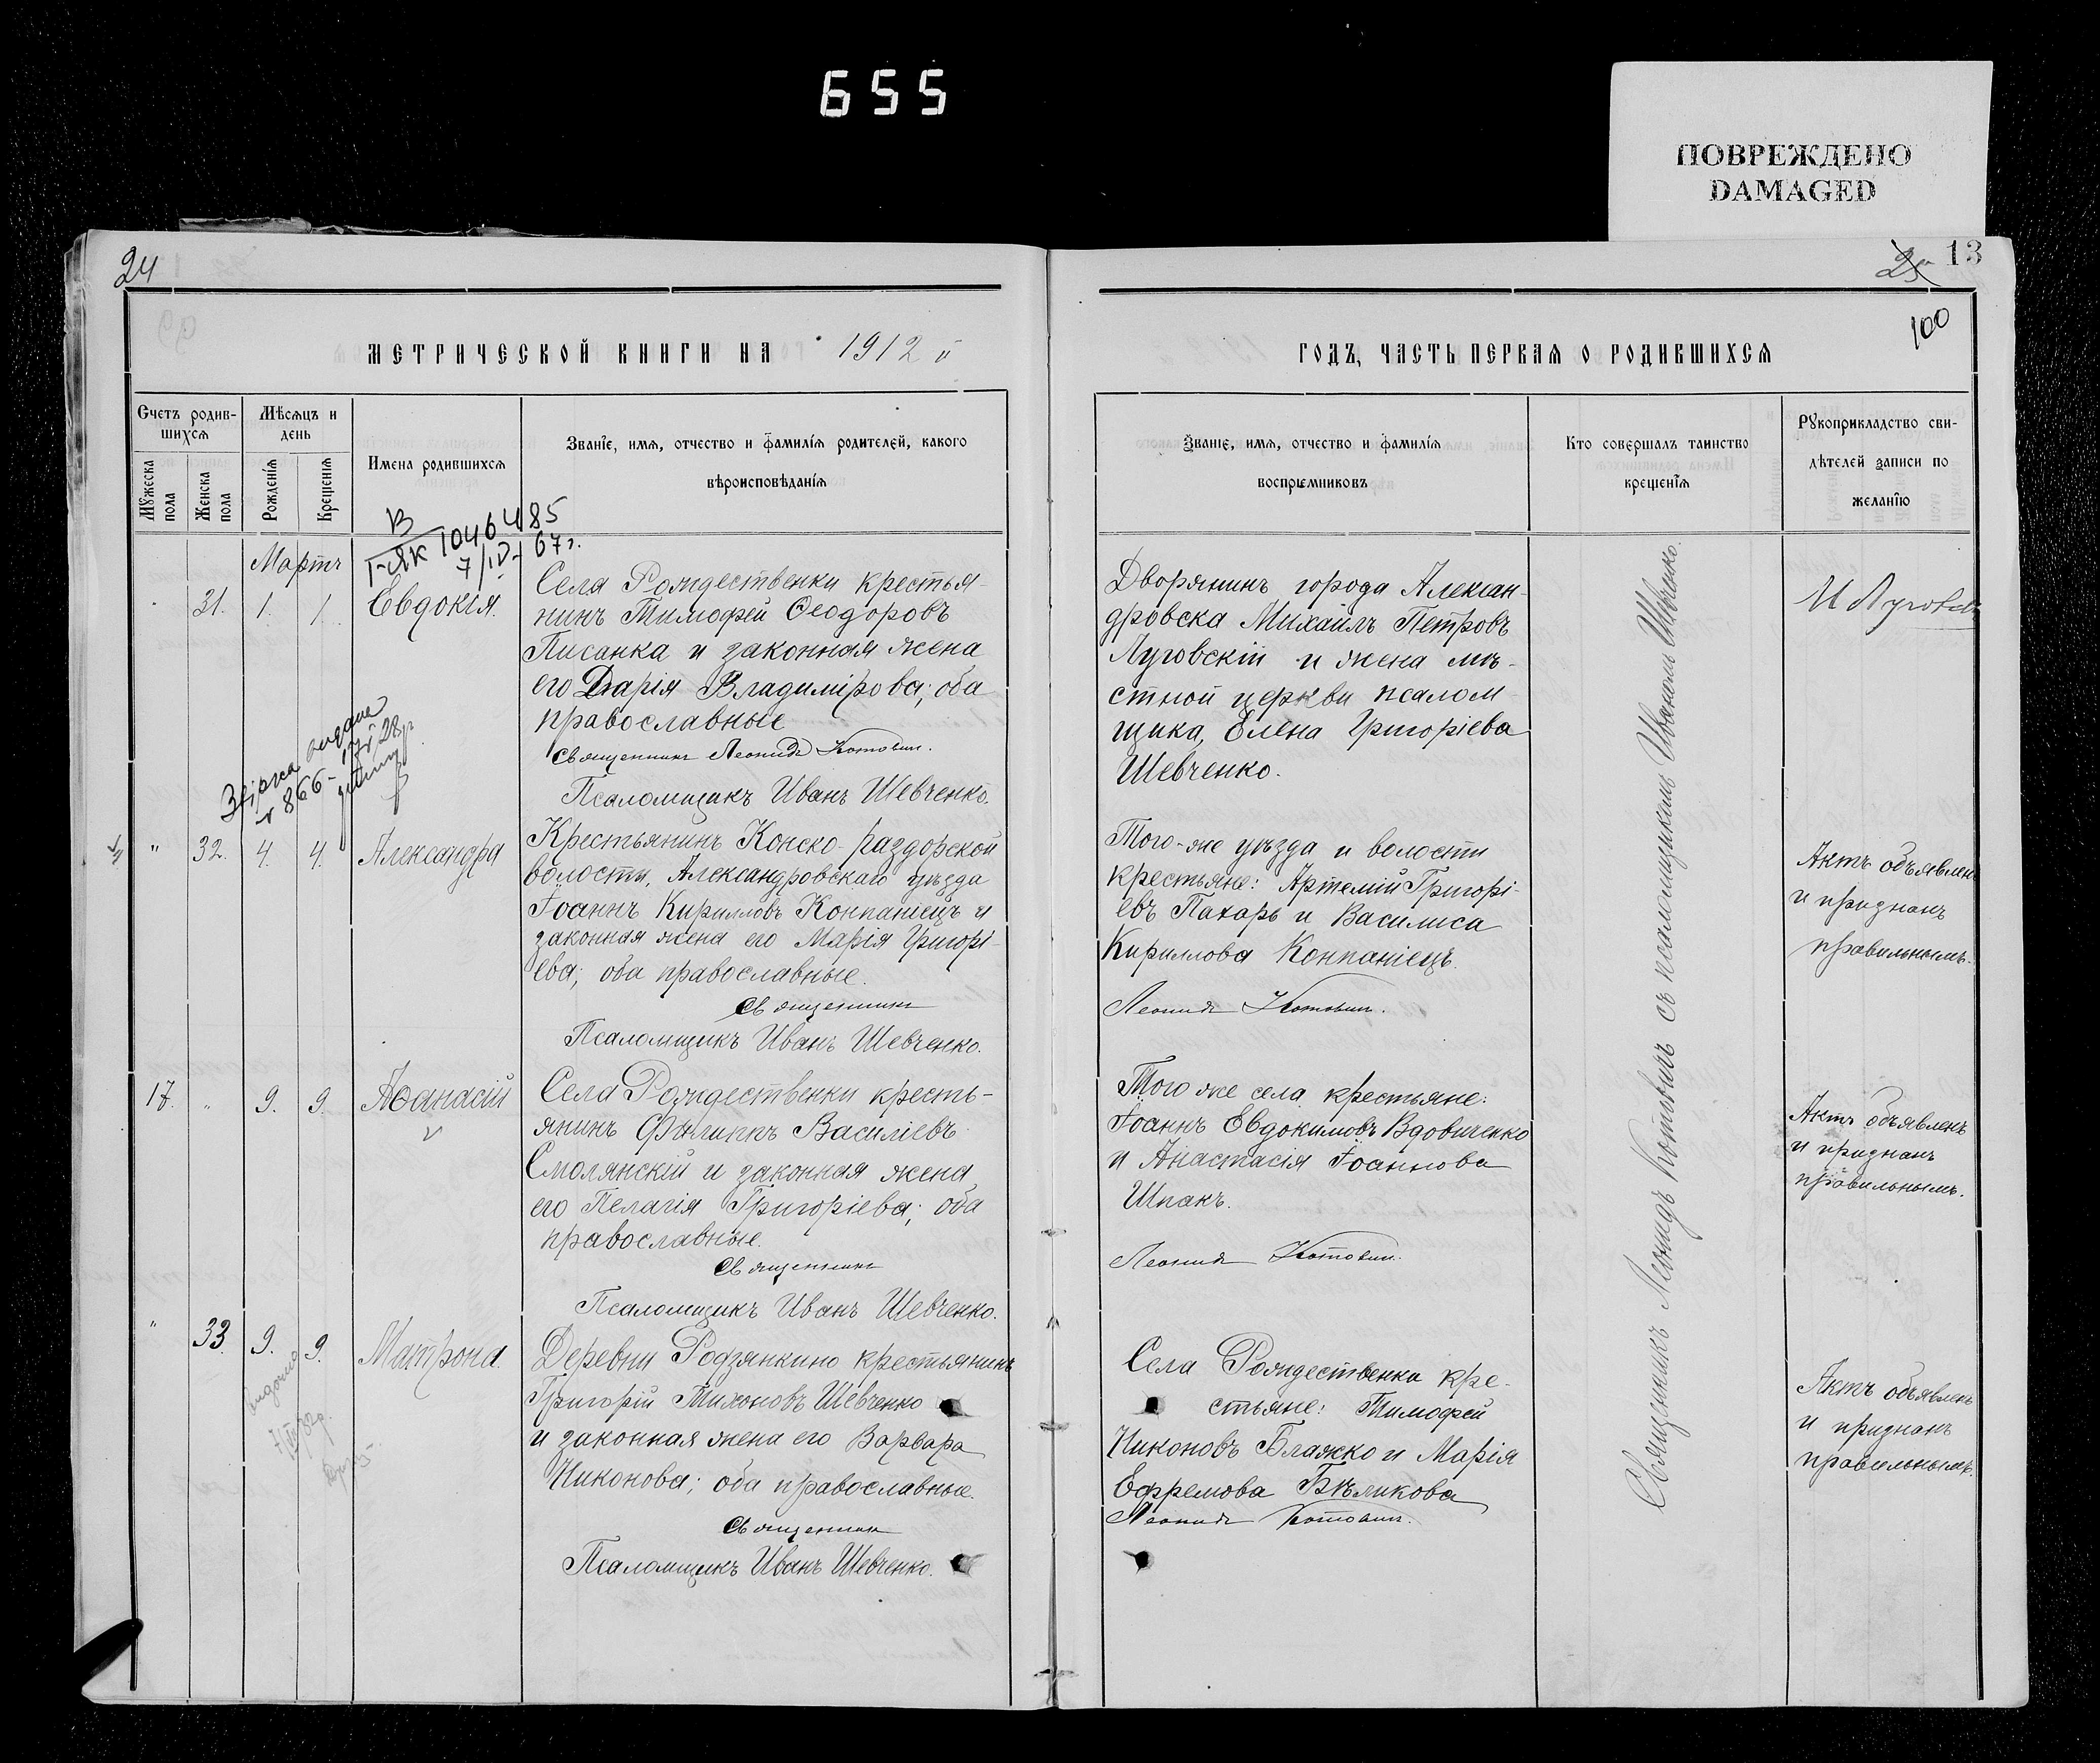 655
ПОВРЕЖДЕНО
DAMAGED
24
25 13
100
МЕТРИЧЕСКОЙ КНИГИ НА 1912 й
Счетъ родив-
шихся
Мѣсяцъ и
день
Имена родившихся
Званіе, имя, отчество и фамилія родителей, какого
вѣроисповѣданія
Мужеска
пола
Женска
пола
Рожденія
Крещенія
В
I-ЯК 1046485
7/IV-67г.
Мартъ
31. 1. 1. Евдокія.
Села Рождественки крестья-
нинъ Тимофей Ѳеодоровъ
Писанка и законная жена
его Дарія Владимірова; оба
православные
Священникъ Леонидъ Котович.
Псаломщикъ Иванъ Шевченко.
№ 866
" 32. 4. 4. Александра
Крестьянинъ Конско-раздорской
волости, Александровскаго уѣзда
Іоаннъ Кирилловъ Конпаніецъ и
законная жена его Марія Григорі-
ева; оба православные.
Священникъ
Псаломщикъ Иванъ Шевченко.
17. " 9. 9. Аѳанасій
Села Рождественки кресть-
янинъ Филиппъ Василіевъ
Смолянскій и законная жена
его Пелагія Григоріева; оба
православные.
Священникъ
Псаломщикъ Иванъ Шевченко.
" 33. 9. 9. Матрона.
Деревни Родзянкино крестьянинъ
Григорій Тихоновъ Шевченко
и законная жена его Варвара
Никонова; оба православные.
Священникъ
Псаломщикъ Иванъ Шевченко.
ГОДЪ, ЧАСТЬ ПЕРВАЯ О РОДИВШИХСЯ
Званіе, имя, отчество и фамилія
воспріемниковъ
Кто совершалъ таинство
крещенія
Рукоприкладство сви-
дѣтелей записи по
желанію
Дворянинъ города Алексан-
дровска Михаилъ Петровъ
Луговскій и жена мѣ-
стной церкви псалом-
щика, Елена Григоріева
Шевченко.
Того-же уѣзда и волости
крестьяне: Артемій Григорі-
евъ Пахарь и Василиса
Кириллова Конпаніецъ.
Леонидъ Котович.
Того же села крестьяне:
Іоаннъ Евдокимовъ Вдовиченко
и Анастасія Іоаннова
Шпакъ.
Леонидъ Котович.
Села Рождественки кре-
стьяне: Тимофей
Никоновъ Блажко и Марія
Ефремова Бѣликова
Леонидъ Котович.
Священникъ Леонидъ Котовичъ съ псаломщикомъ Иваномъ Шевченко.
Актъ объявленъ
и признанъ
правильнымъ.
Актъ объявленъ
и признанъ
правильнымъ.
Актъ объявленъ
и признанъ
правильнымъ.